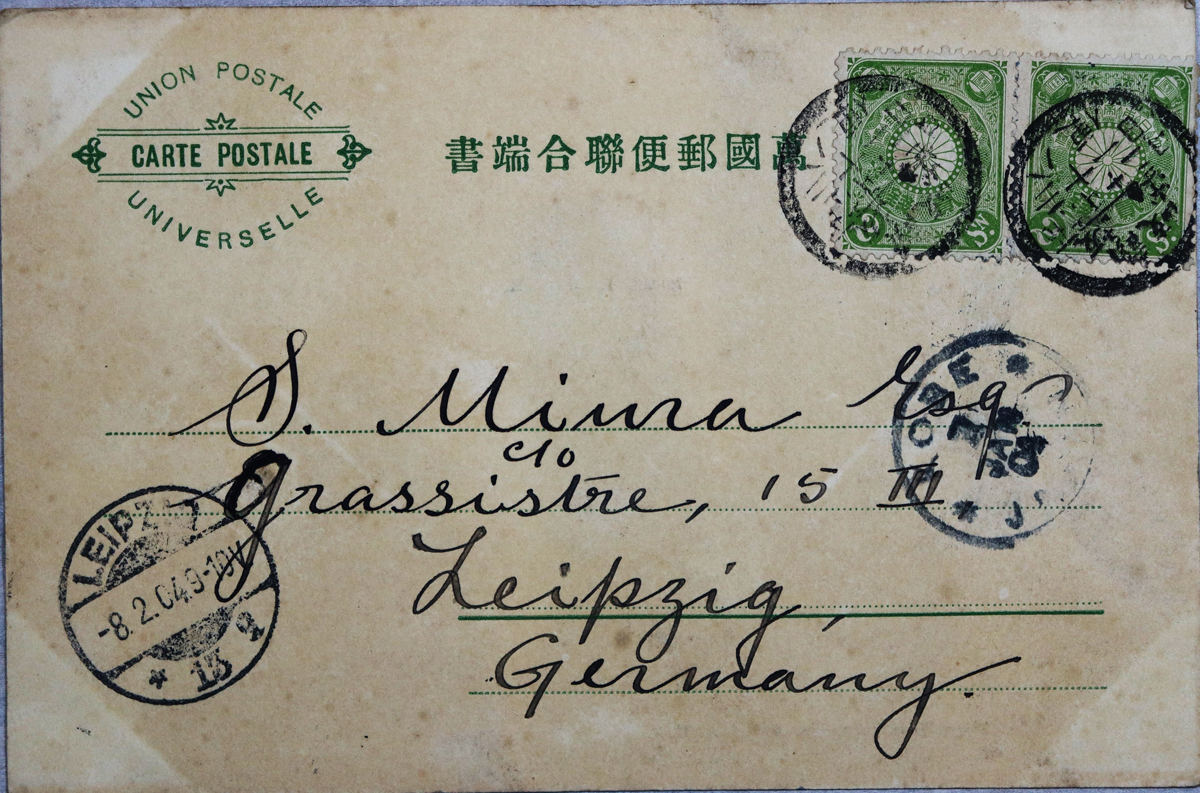 UNION POSTALE
CARTE POSTALE
UNIVERSELLE
萬國郵便聯合端書
S. Miura Esq
c/o
Grassistre, 15 III
Leipzig,
Germany.
KOBE
JAN
04
LEIPZIG
-8.2.04.9-10V
* 13